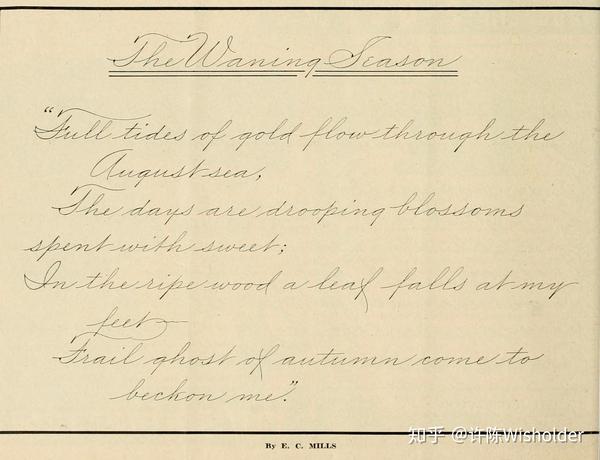 The Waning Season
"Full tides of gold flow through the
August sea,
The days are drooping blossoms
spent with sweet;
In the ripe wood a leaf falls at my
feet—
Frail ghost of autumn come to
beckon me."
By E. C. MILLS
知乎 @许陈Wisholder